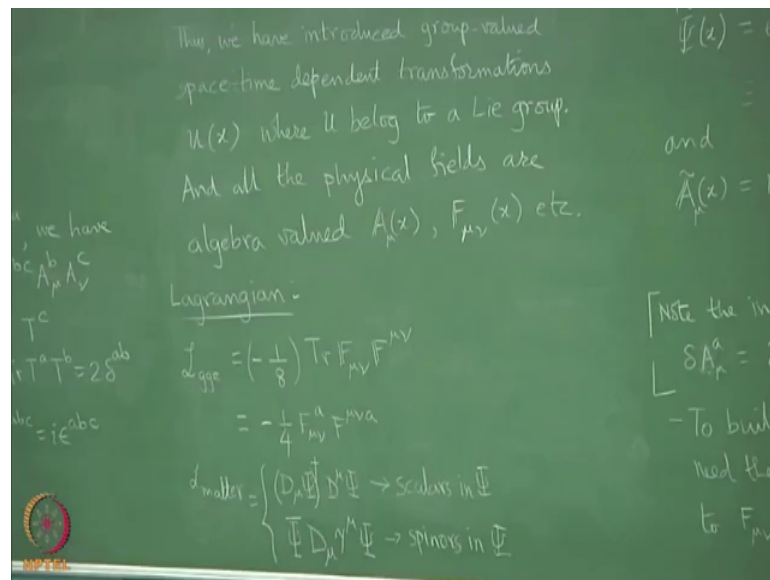 Thus, we have introduced group-valued
space-time dependent transformations
U(x) where U belog to a Lie group.
And all the physical fields are
algebra valued A_μ(x), F_μν(x) etc.
Lagrangian:
ℒ_gge = (-1/8) Tr F_μν F^μν
= -1/4 F^a_μν F^μνa
ℒ_matter = { (D_μΨ)^† D^μΨ → scalars in Ψ
Ψ̄ D_μ γ^μ Ψ → spinors in Ψ
, we have
bc A^b_μ A^c_ν
T^c
r T^a T^b = 2δ^ab
abc = iε^abc
Ψ̃(x) =
=
and
Ã_μ(x) =
[Note the in
δA^a_μ =
- To buil
need the
to F_μν
NPTEL